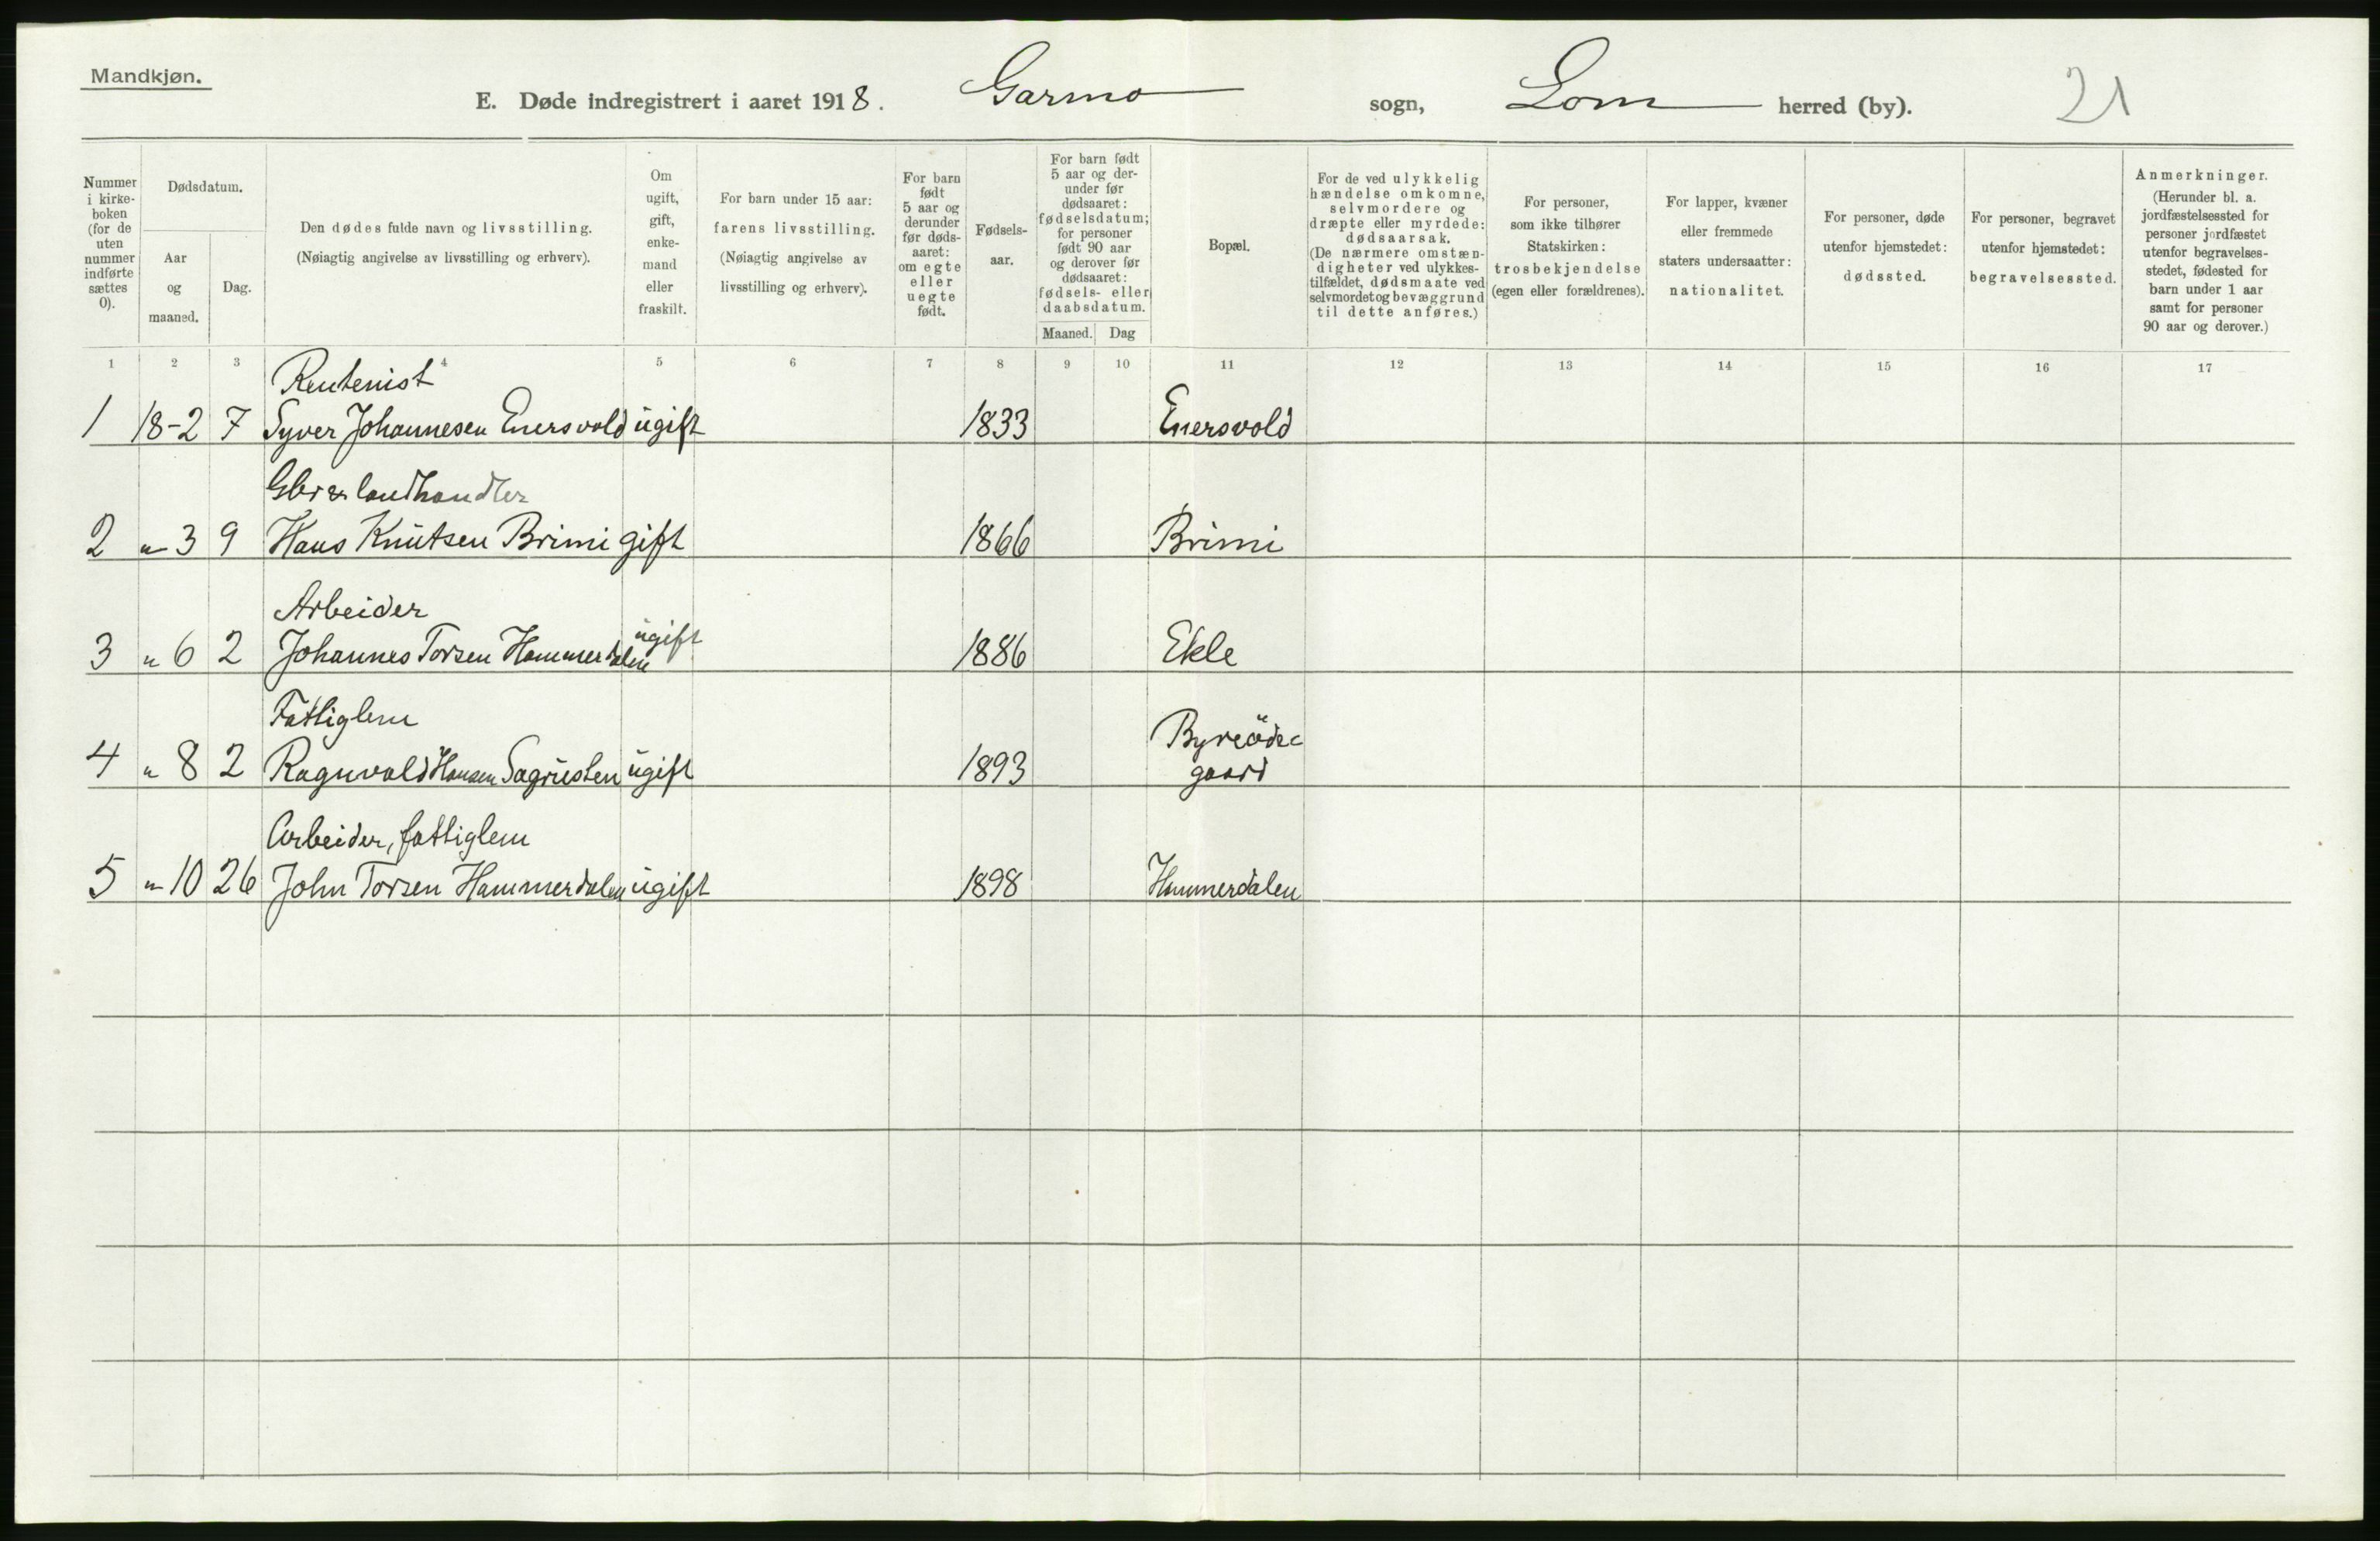 Mandkjøn.
E. Døde indregistrert i aaret 1918. Garmo sogn, Lom herred (by). 21
Nummer i kirke-boken (for de uten nummer indførte sættes 0).
Dødsdatum.
Aar og maaned.
Dag.
Den dødes fulde navn og livsstilling.
(Nøiagtig angivelse av livsstilling og erhverv).
Om ugift, gift, enke-mand eller fraskilt.
For barn under 15 aar:
farens livsstilling.
(Nøiagtig angivelse av livsstilling og erhverv).
For barn født 5 aar og derunder før døds-aaret: om egte eller uegte født.
Fødsels-aar.
For barn født 5 aar og der-under før dødsaaret: fødselsdatum; for personer født 90 aar og derover før dødsaaret: fødsels- eller daabsdatum.
Maaned. Dag
Bopæl.
For de ved ulykkelig hændelse omkomne, selvmordere og dræpte eller myrdede: dødsaarsak. (De nærmere omstæn-digheter ved ulykkes-tilfældet, dødsmaate ved selvmordet og bevæggrund til dette anføres.)
For personer, som ikke tilhører Statskirken: trosbekjendelse (egen eller forældrenes).
For lapper, kvæner eller fremmede staters undersaatter: nationalitet.
For personer, døde utenfor hjemstedet: dødssted.
For personer, begravet utenfor hjemstedet: begravelsessted.
Anmerkninger.
(Herunder bl. a. jordfæstelsessted for personer jordfæstet utenfor begravelses-stedet, fødested for barn under 1 aar samt for personer 90 aar og derover.)
1 2 3 4 5 6 7 8 9 10 11 12 13 14 15 16 17
Rentenist
1 18-2 7 Syver Johannesen Enersvold ugift 1833 Enersvold
Gbr & landhandler
2 " 3 9 Hans Knutsen Brimi gift 1866 Brimi
Arbeider
3 " 6 2 Johannes Torsen Hammerdalen ugift 1886 Ekle
Fattiglem
4 " 8 2 Ragnvald Hansen Sagrusten ugift 1893
gaard
Arbeider, fattiglem
5 " 10 26 John Torsen Hammerdalen ugift 1898 Hammerdalen